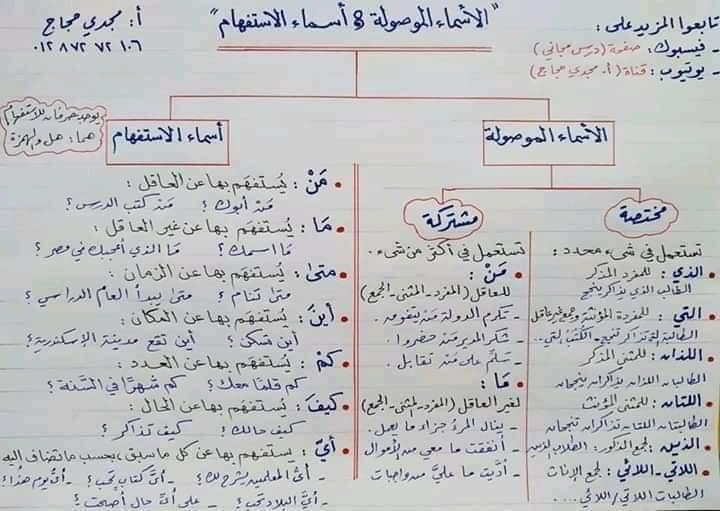 "الأسماء الموصولة & أسماء الاستفهام"
أ: مجدي حجاج
٠١٢٨٧٢٧٢١٠٦
تابعوا المزيد على:
- فيسبوك: صفحة (درس مجاني)
- يوتيوب: قناة (أ. مجدي حجاج)
الأسماء الموصولة
مختصة
تستعمل في شيء محدد:
• الذي: للمفرد المذكر
الطالب الذي يذاكر ينجح
• التي: للمفردة المؤنثة وجمع غير عاقل
الطالبة التي تذاكر تنجح - الكُتبُ التي..
• اللذان: للمثنى المذكر
الطالبان اللذان يذاكران ينجحان
• اللتان: للمثنى المؤنث
الطالبتان اللتان تذاكران تنجحان
• الذين: لجمع الذكور: الطلاب الذين
• اللاتي - اللائي: لجمع الإناث
الطالبات اللاتي / اللائي ....
مشتركة
تستعمل في أكثر من شيء.
• مَنْ:
للعاقل (المفرد - المثنى - الجمع)
- تكرم الدولة مَن يتفوق.
- شكر المدير مَن حضروا.
- سلِّم على مَن تقابل.
• مَا:
لغير العاقل (المفرد - المثنى - الجمع)
- ينال المرءُ جزاء ما يعمل.
- أنفقت ما معي من الأموال
- أدّيت ما عليَّ من واجبات
أسماء الاستفهام
يوجد حرفان للاستفهام
هما: هل والهمزة
• مَنْ: يُستفهَم بها عن العاقل:
مَن أبوك؟ مَن كتب الدرس؟
• مَا: يُستفهَم بها عن غير العاقل:
مَا اسمك؟ مَا الذي أعجبك في مصر؟
• متى: يُستفهَم بها عن الزمان:
متى تنام؟ متى يبدأ العام الدراسي؟
• أينَ: يُستفهَم بها عن المكان:
أين تسكن؟ أين تقع مدينة الإسكندرية؟
• كمْ: يُستفهَم بها عن العدد:
كم قلمًا معك؟ كم شهرًا في السَّنة؟
• كيفَ: يُستفهَم بها عن الحال:
كيف حالك؟ كيف تذاكر؟
• أيّ: يستفهم بها عن كل ما سبق، بحسب ما تضاف إليه
- أيُّ المعلمين يشرح لك؟ - أيَّ كتاب تحب؟ - أيُّ يوم هذا؟
- أيَّ البلاد تحب؟ - على أيِّ حال أصبحت؟